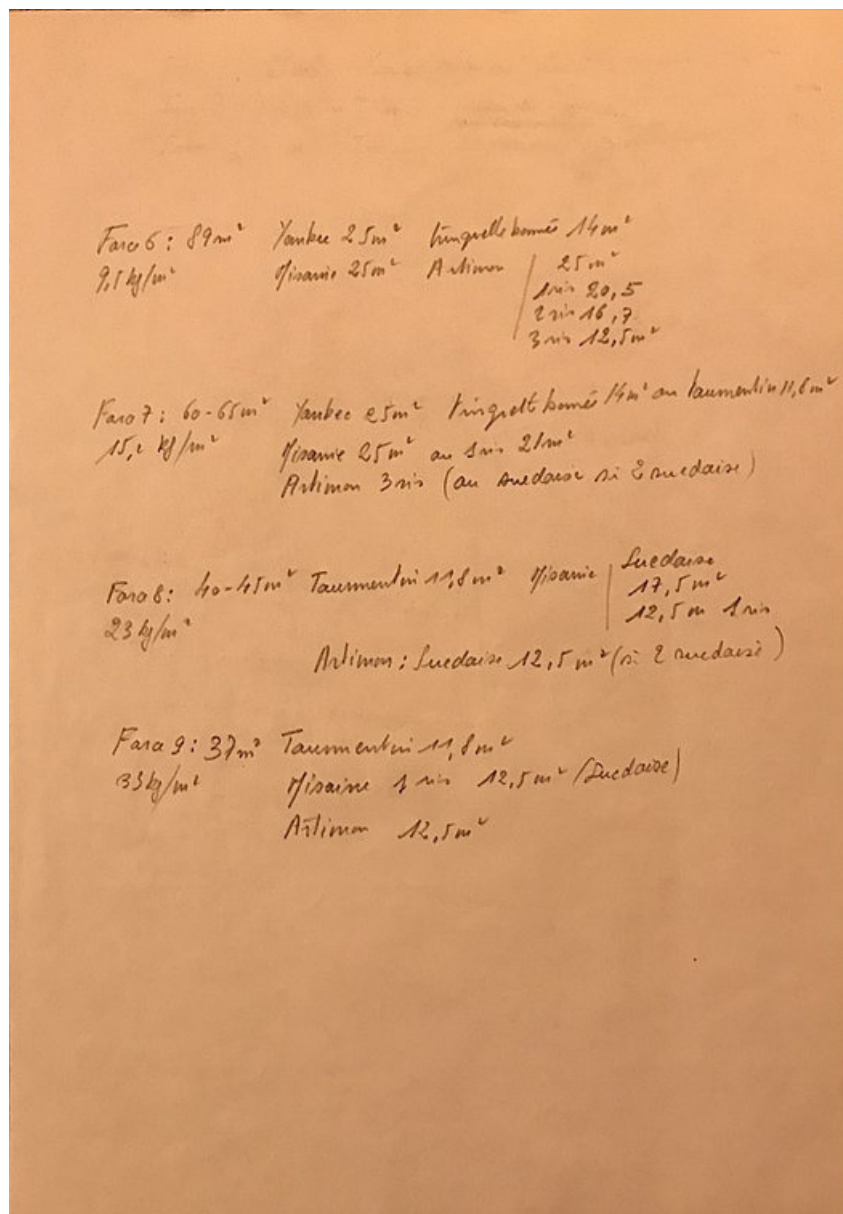 Force 6 : 89m² Yankee 25m² tinquette bomée 14m²
9,5 kg/m² Misaine 25m² Artimon 25m²
1 ris 20,5
2 ris 16,7
3 ris 12,5m²
Force 7 : 60-65m² Yankee 25m² tinquette bomée 14m² ou tourmentin 11,8m²
15,2 kg/m² Misaine 25m² ou 1 ris 21m²
Artimon 3 ris (ou suedoise si 2 suedoise)
Force 8 : 40-45m² Tourmentin 11,8m² Misaine Suedoise
23 kg/m² 17,5m²
12,5 ou 1 ris
Artimon : Suedoise 12,5m² (si 2 suedoise)
Force 9 : 37m² Tourmentin 11,8m²
33kg/m² Misaine 1 ris 12,5m² (Suedoise)
Artimon 12,5m²